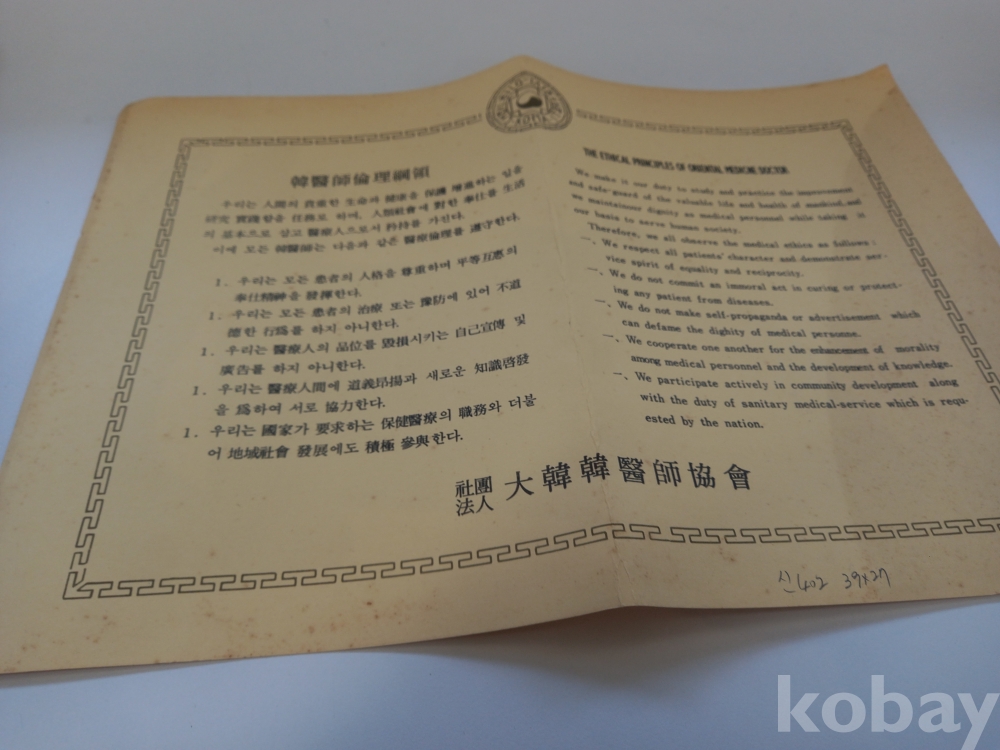 韓醫師倫理綱領
우리는 人間의 貴重한 生命과 健康을 保護 增進하는 일을
研究 實踐함을 任務로 하며, 人類社會에 對한 奉仕를 生活
의 基本으로 삼고 醫療人으로서 矜持를 가진다.
이에 모든 韓醫師는 다음과 같은 醫療倫理를 遵守한다.
1. 우리는 모든 患者의 人格을 尊重하며 平等互惠의
奉仕精神을 發揮한다.
1. 우리는 모든 患者의 治療 또는 豫防에 있어 不道
德한 行爲를 하지 아니한다.
1. 우리는 醫療人의 品位를 毁損시키는 自己宣傳 및
廣告를 하지 아니한다.
1. 우리는 醫療人間에 道義昂揚과 새로운 知識啓發
을 爲하여 서로 協力한다.
1. 우리는 國家가 要求하는 保健醫療의 職務와 더불
어 地域社會 發展에도 積極 參與한다.
THE ETHICAL PRINCIPLES OF ORIENTAL MEDICINE DOCTOR
We make it our duty to study and practise the improvement
and safe-guard of the valuable life and health of mankind, and
we maintainour dignity as medical personnel while taking it
our basis to serve human society.
Therefore, we all observe the medical ethics as follows :
一、We respect all patients' character and demonstrate ser-
vice spirit of equality and reciprocity.
一、We do not commit an immoral act in curing or protect-
ing any patient from diseases.
一、We do not make self-propaganda or advertisement which
can defame the dighity of medical personne.
一、We cooperate one another for the enhancement of morality
among medical personnel and the development of knowledge.
一、We participate actively in community development along
with the duty of sanitary medical-service which is requ-
ested by the nation.
社團
法人 大韓韓醫師協會
신402 39×27
kobay